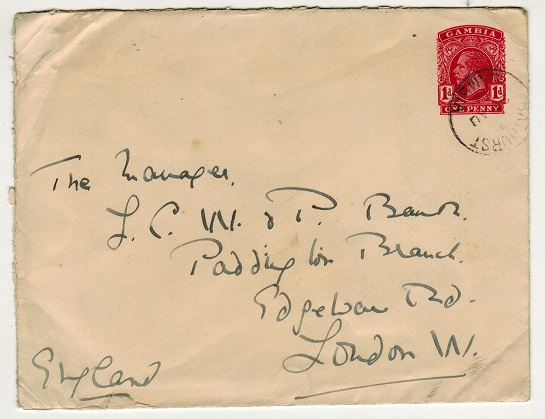 GAMBIA
1d 1d
ONE PENNY
BATHURST
The Manager,
L. C. W. & P. Bank.
Paddington Branch.
Edgeware Rd.
London W.
England